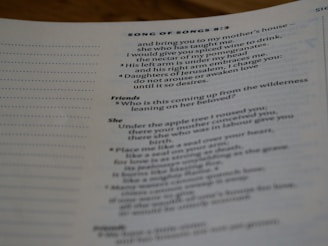 SONG OF SONGS 8:3
and bring you to my mother's house –
she who has taught me.
I would give you spiced wine to drink,
the nectar of my pomegranates.
3 His left arm is under my head
and his right arm embraces me.
4 Daughters of Jerusalem, I charge you:
do not arouse or awaken love
until it so desires.
Friends
5 Who is this coming up from the wilderness
leaning on her beloved?
She
Under the apple tree I roused you;
there your mother conceived you,
there she who was in labour gave you
birth.
6 Place me like a seal over your heart,
like a seal on your arm;
for love is as strong as death,
its jealousy unyielding as the grave.
It burns like blazing fire,
like a mighty flame.
7 Many waters cannot quench love;
rivers cannot sweep it away.
If one were to give
all the wealth of one's house for love,
it would be utterly scorned.
Friends